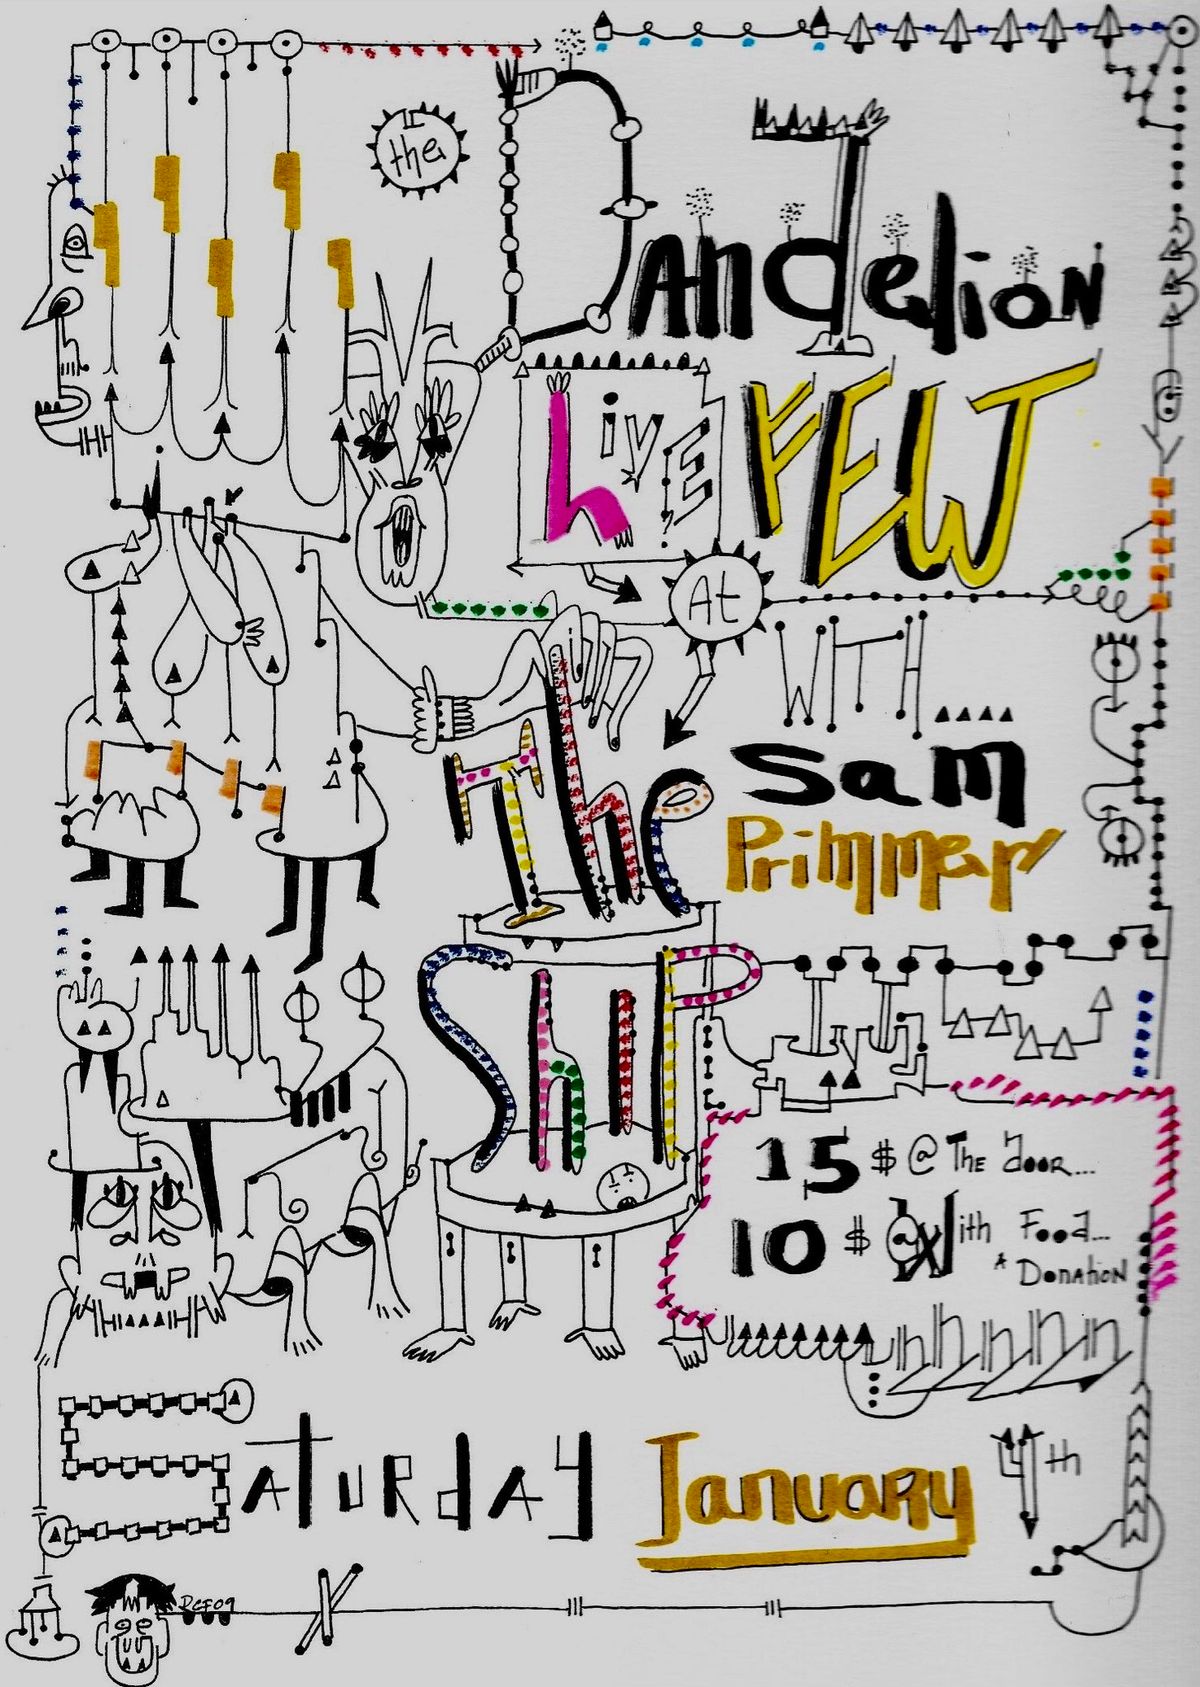 the
DandelioN
LivE
FEW
At
WITH
The
Sam
Primmer
ShiP
15 $ @ The door...
10 $ With Food...
A Donation
SATURdAY January 4th
RCF09